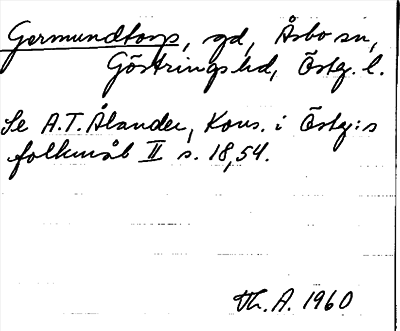 Germundtorp, gd, Åsbo sn,
Göstrings hd, Östg. l.
Se A.T. Ålander, Kons. i Östg:s
folkmål II s. 18, 54.
Th. A. 1960